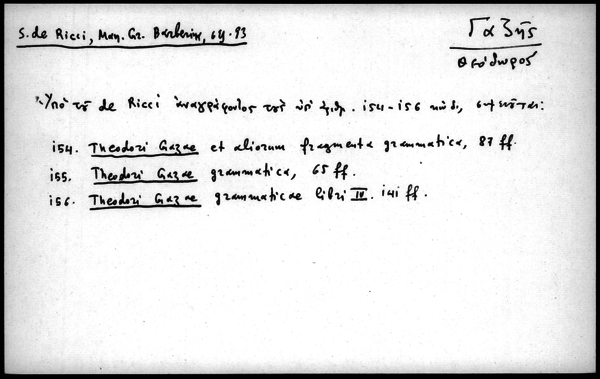 S. de Ricci, Man. Gr. Barberin, σελ. 93
Γαζῆς
Θεόδωρος
Ὑπὸ τοῦ de Ricci ἀναγράφονται ὑπ' ἀριθ. 154-156 κώδ.,
154. Theodori Gazae et aliorum fragmenta grammatica, 87 ff.
155. Theodori Gazae grammatica, 65 ff.
156. Theodori Gazae grammaticae libri IV. 141 ff.